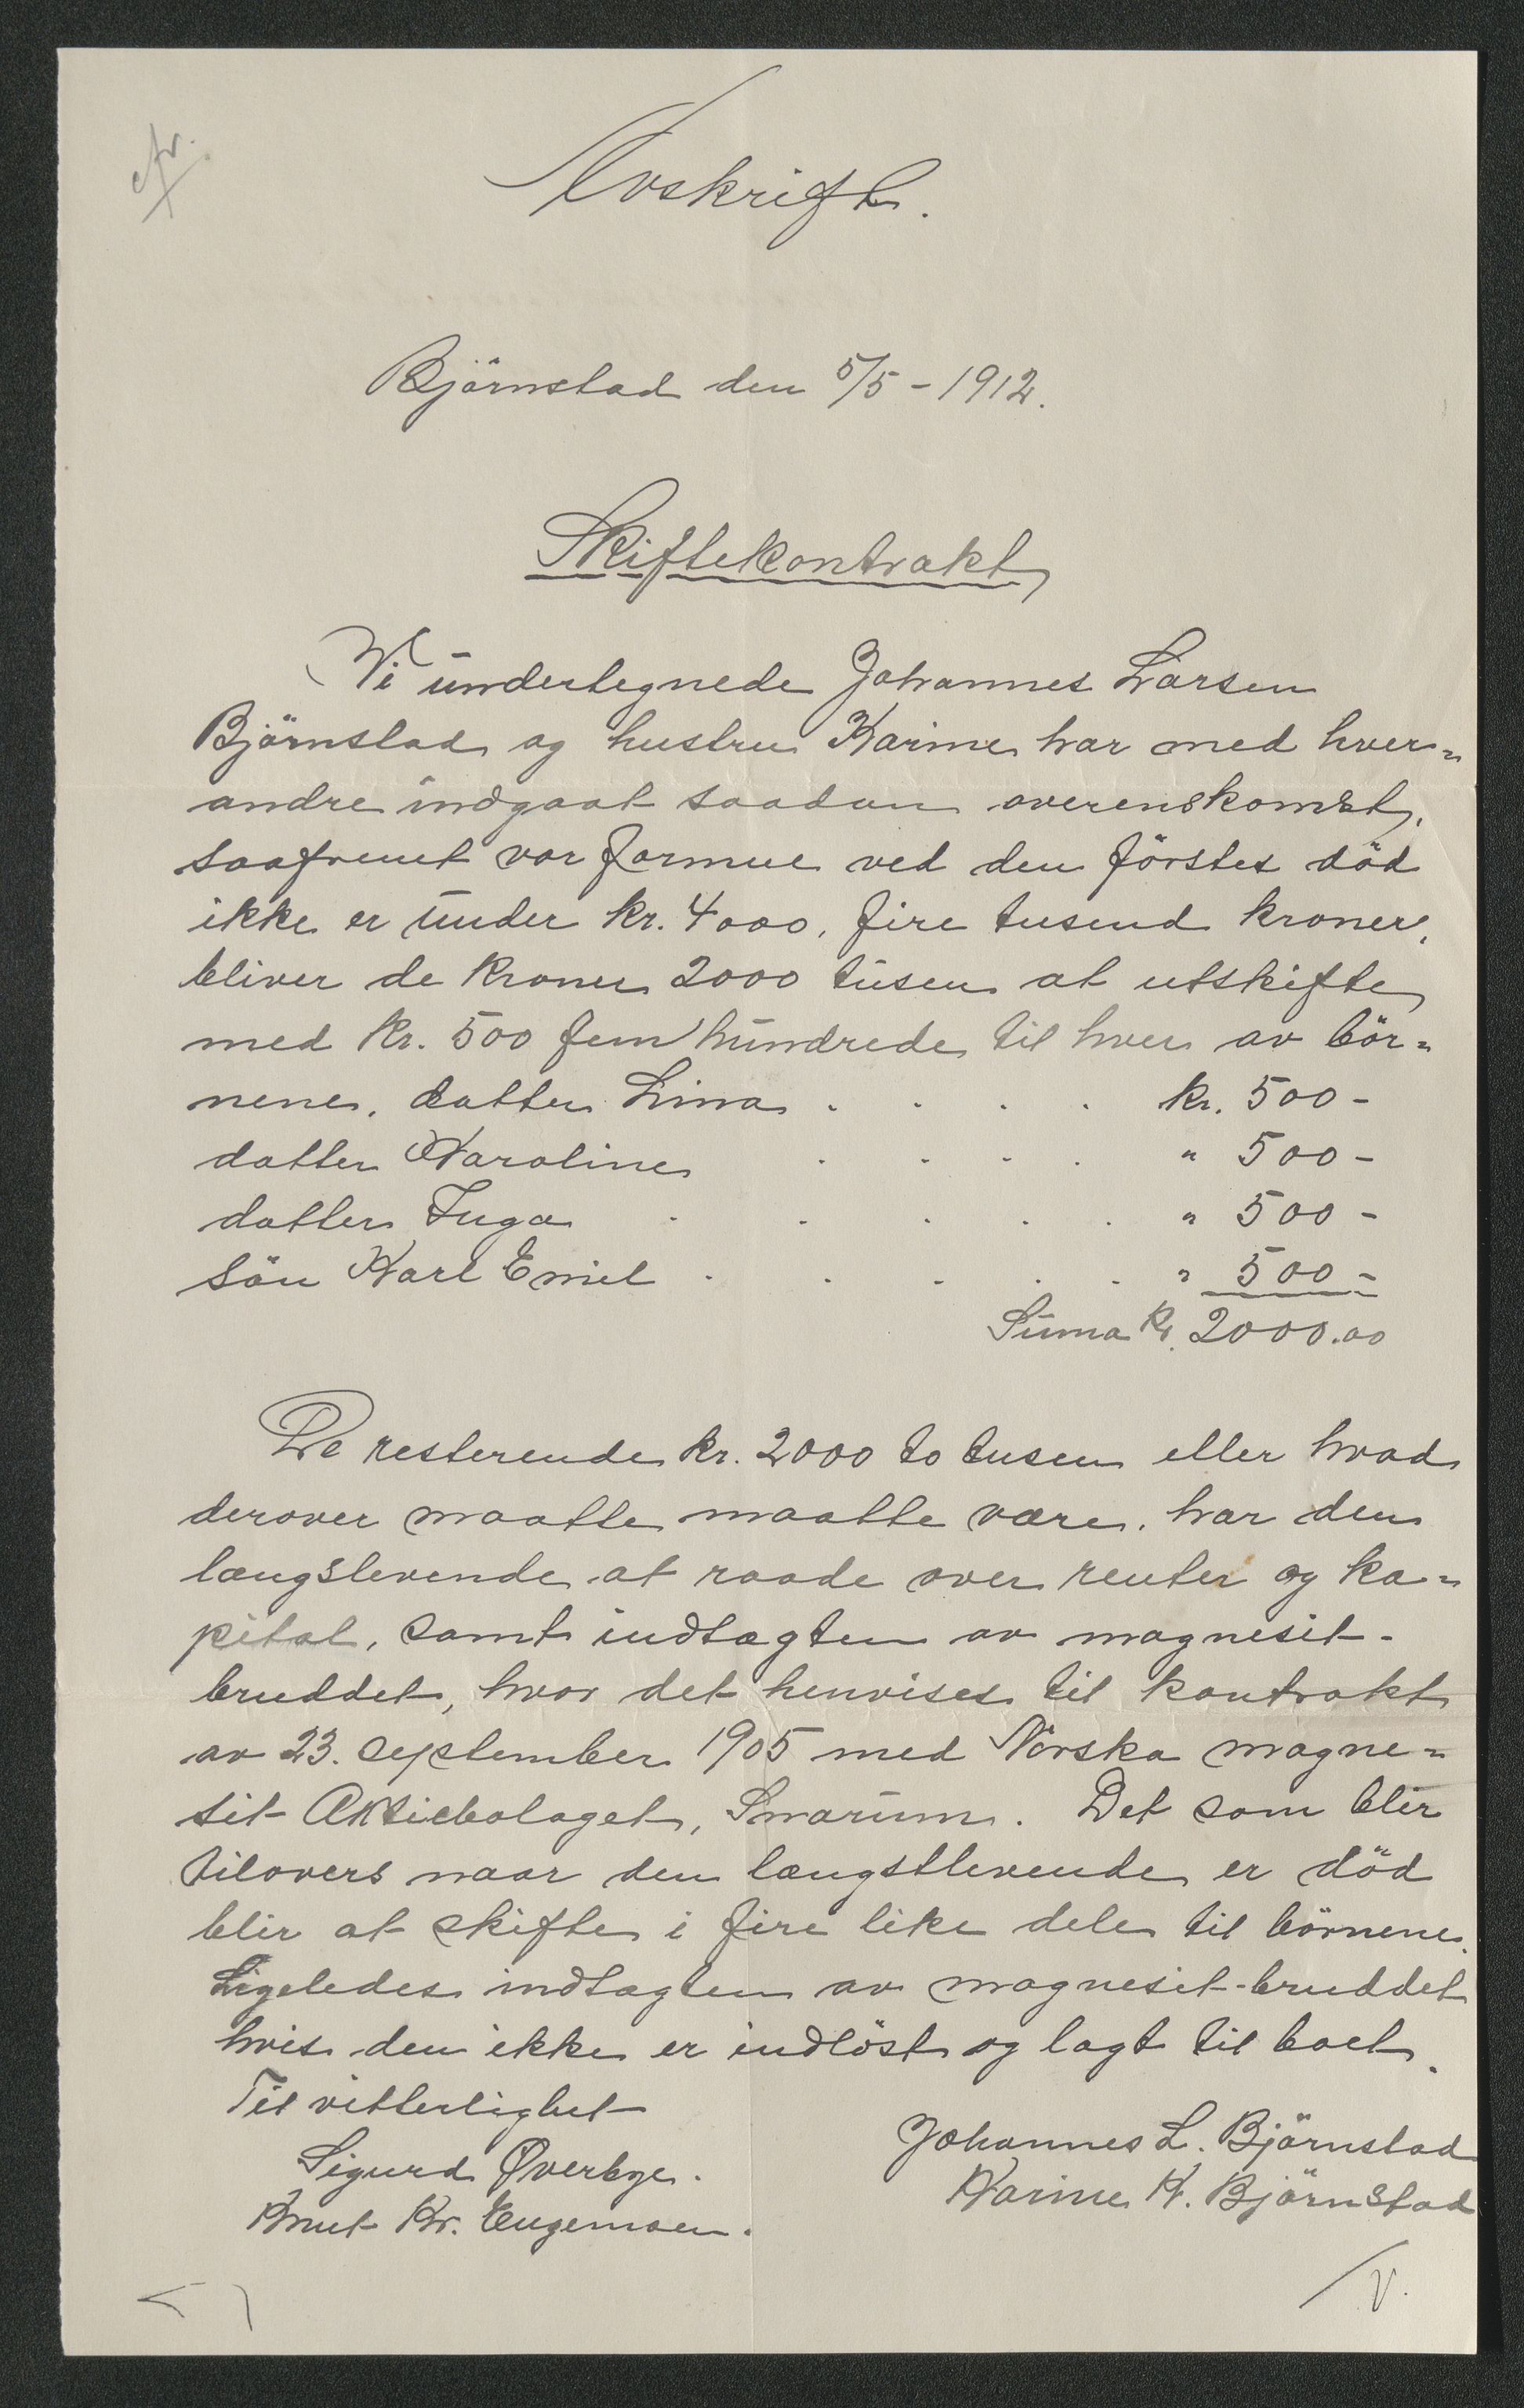 Avskrift.
Björnstad den 5/5 - 1912.
Skiftekontrakt
Vi undertegnede Johannes Larsen
Björnstad og hustru Karine har med hver=
andre indgaat saadan overenskomst,
saafremt vor formue ved den förstes död
ikke er under kr. 4000, fire tusend kroner,
bliver de kroner 2000 tusen at utskifte
med kr. 500 fem hundrede til hver av bör=
nene, datter Lina . . . . kr. 500 -
datter Karoline . . . . " 500 -
datter Inga . . . . . " 500 -
sön Karl Emil . . . . . " 500 -
Suma kr. 2000.00
De resterende kr. 2000 to tusen eller hvad
derover maatte maatte være, har den
længslevende at raade over renter og ka=
pital, samt indtægten av magnesit-
bruddet, hvor det henvises til kontrakt
av 23. september 1905 med Norska magne=
sit Aktiebolaget, Snarum. Det som blir
tilovers naar den længstlevende er död
blir at skifte i fire like dele til börnene.
Ligeledes indtægten av magnesit-bruddet
hvis den ikke er indlöst og lagt til boet.
Til vitterlighet
Johannes L. Björnstad
Sigurd Øverbye.
Karine K. Björnstad
Knut Kr. Eugemoen.
V.